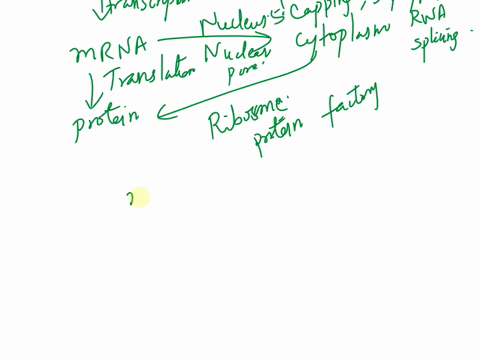 Transcription
Nucleus: 5' Capping,
RNA
splicing.
mRNA
Nuclear
pore.
Cytoplasm
Translation
protein
Ribosome.
protein factory